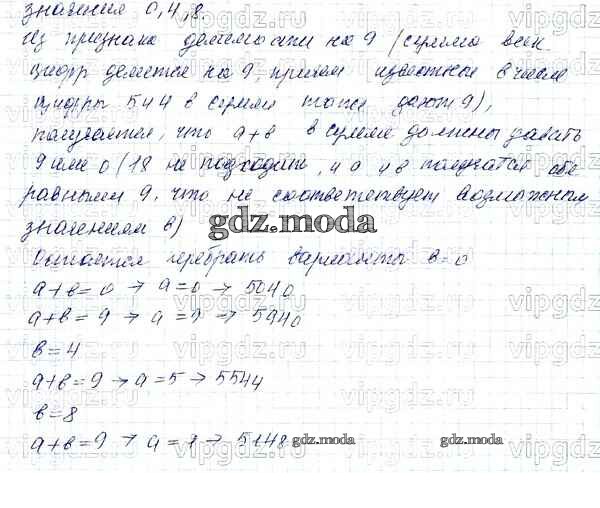 значения 0, 4, 8
Из признака делимости на 9 (сумма всех
цифр делится на 9, причем известные в числе
цифры 544 в сумме тоже дают 9),
получается, что a+в в сумме должны давать
9 или 0 (18 не подходит, и a и в получатся оба
равными 9, что не соответствует возможным
значениям в)
gdz.moda
Остается перебрать варианты в=0
a+в=0 → a=0 → 5040
a+в=9 → a=9 → 5940
в=4
a+в=9 → a=5 → 5544
в=8
a+в=9 → a=1 → 5148
gdz.moda gdz.moda
vipgdz.ru